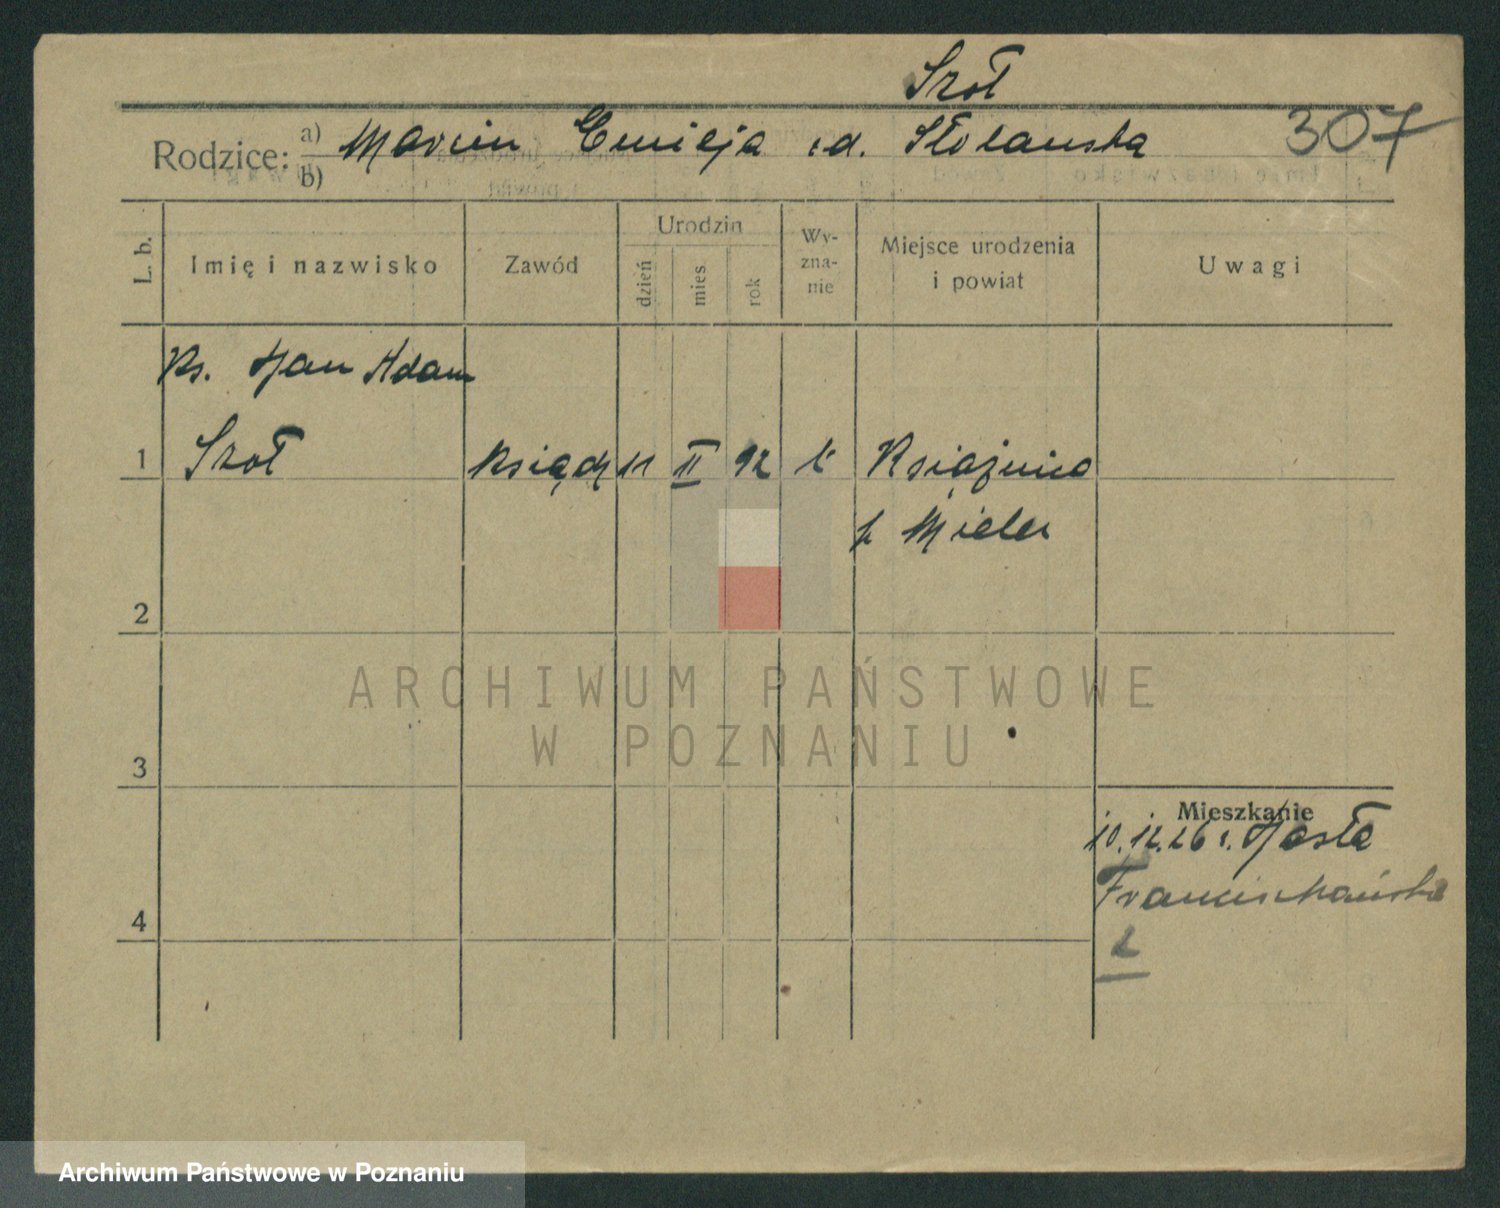 Szoł
Rodzice: a) Marcin Emilja z d. Stolarska 307
b)
L. b. Imię i nazwisko Zawód Urodzin dzień mies. rok Wyznanie Miejsce urodzenia i powiat Uwagi
Ks. Jan Adam
1 Szoł Ksiądz 11 II 92 k Książnice
p Mielec
2
ARCHIWUM PAŃSTWOWE
W POZNANIU
3
Mieszkanie
10.12.26 r. Jasła
Franciszkańska
4
2
Archiwum Państwowe w Poznaniu